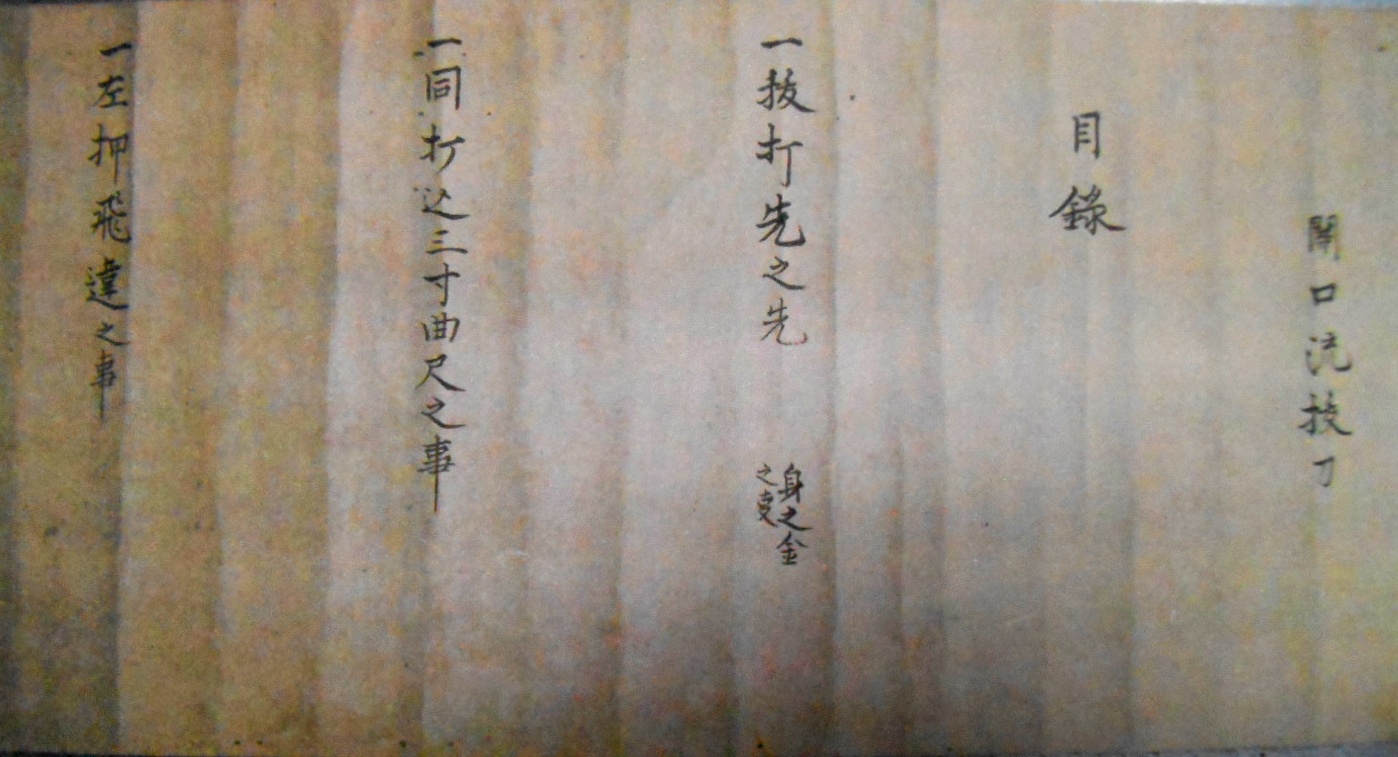 關口流抜刀
目錄
一抜打先之先
身之金
之曳
一同打込三寸曲尺之事
一左押飛違之事